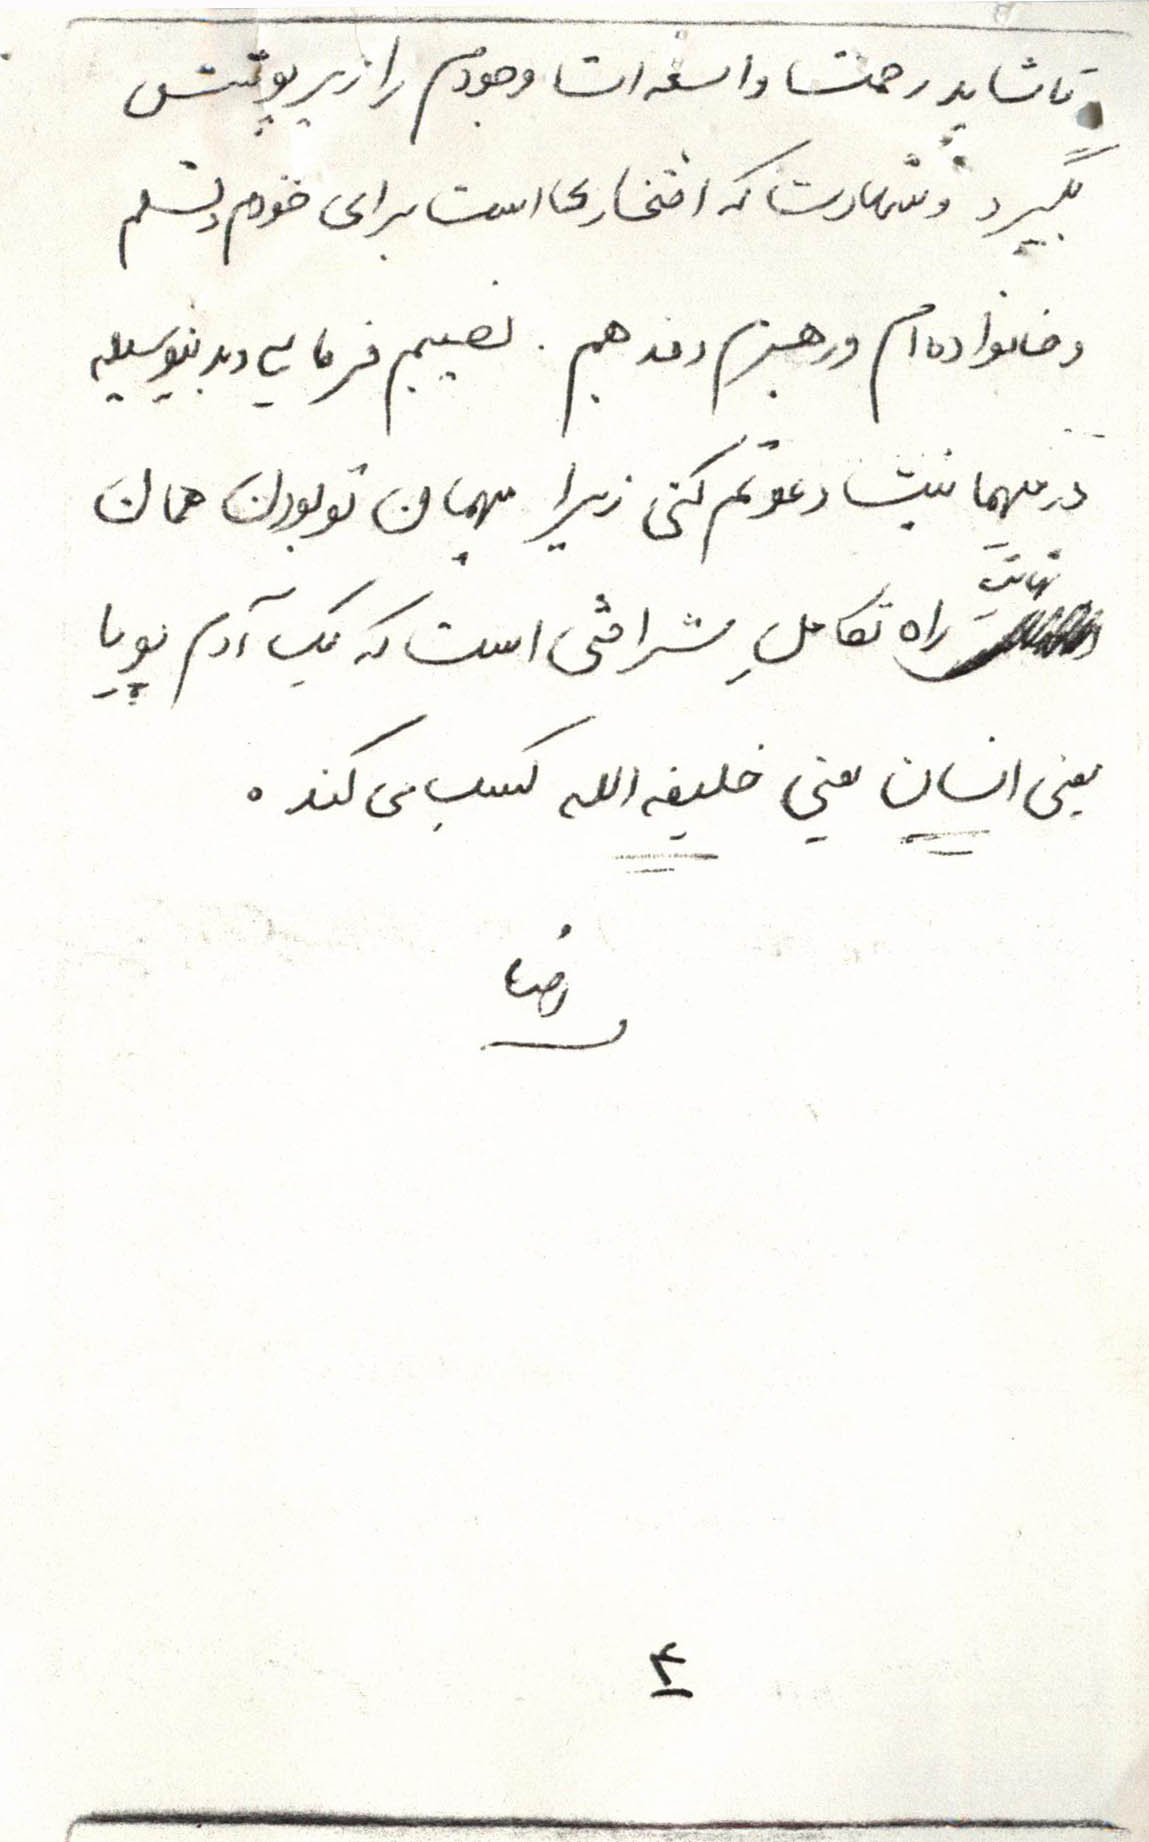 تا شاید رحمت واسعه ات وجودم را زیر پوشش
بگیرد و شهادت که افتخاری است برای خودم و نسلم
و خانواده ام و رهبرم و مذهبم. نصیبم فرمایی و بدینوسیله
در میهمانیت دعوتم کنی زیرا میهمان تو بودن همان
نهایت
راه تکامل شرافتی است که یک آدم پویا
یعنی انسان یعنی خلیفه الله کسب می کند.
رضا
۴